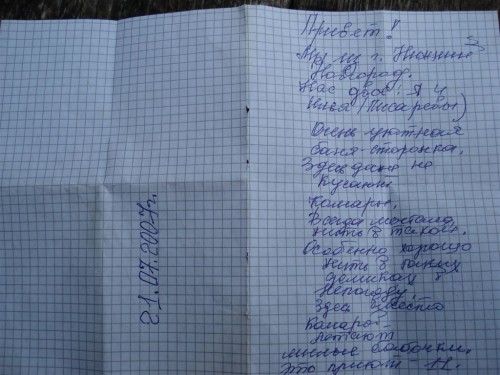 Привет!
Мы из г. Нижний
Новгород.
Нас двое: Я и
Илья (Писаревы)
Очень уютная
баня-сторожка.
Здесь даже не
кусают
комары.
Всегда мечтала
жить в таком.
Особенно хорошо
жить в таких
домиках в
непогоду.
Здесь вместо
комаров
летают
милые бабочки.
Это приют
21.07.2007г.